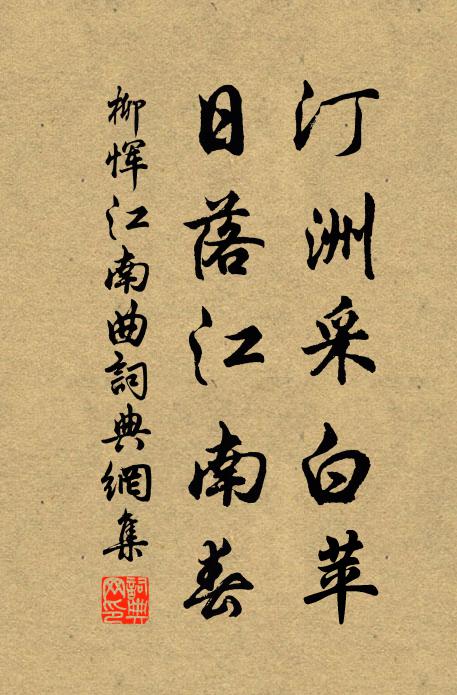 汀洲采白苹
日落江南春
柳惲江南曲詞典網集
詞典網印